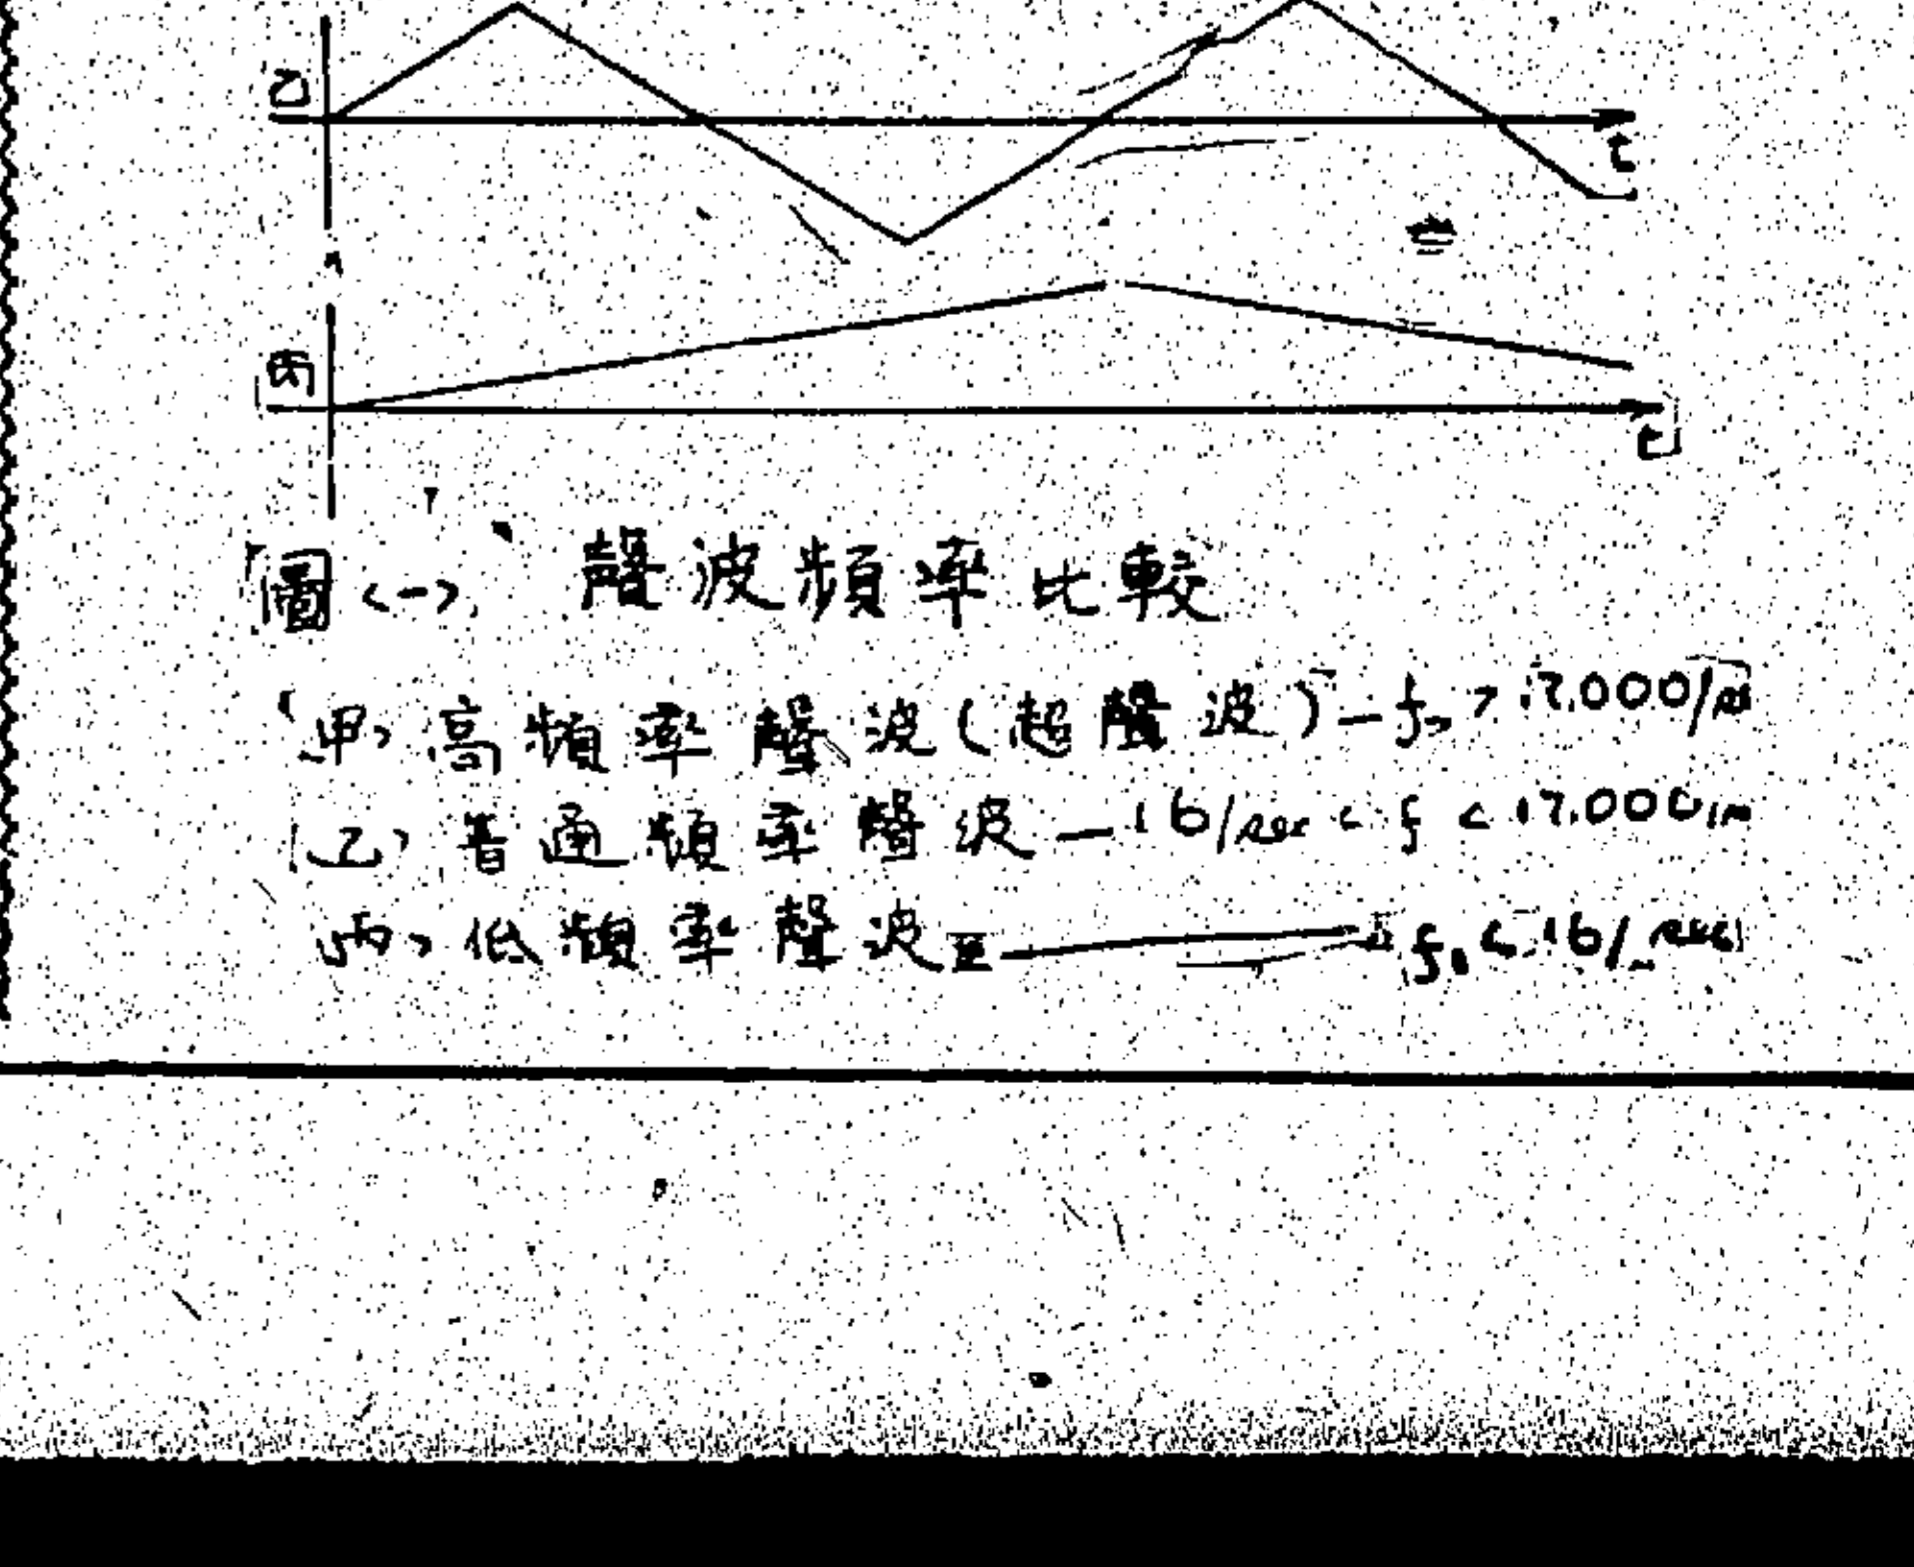 乙
t
丙
t
圖(一) 聲波頻率比較
甲、高頻率聲波(超聲波)— f > 17.000/
乙、普通頻率聲波 — 16/sec < f < 17.000/
丙、低頻率聲波 — f < 16/sec